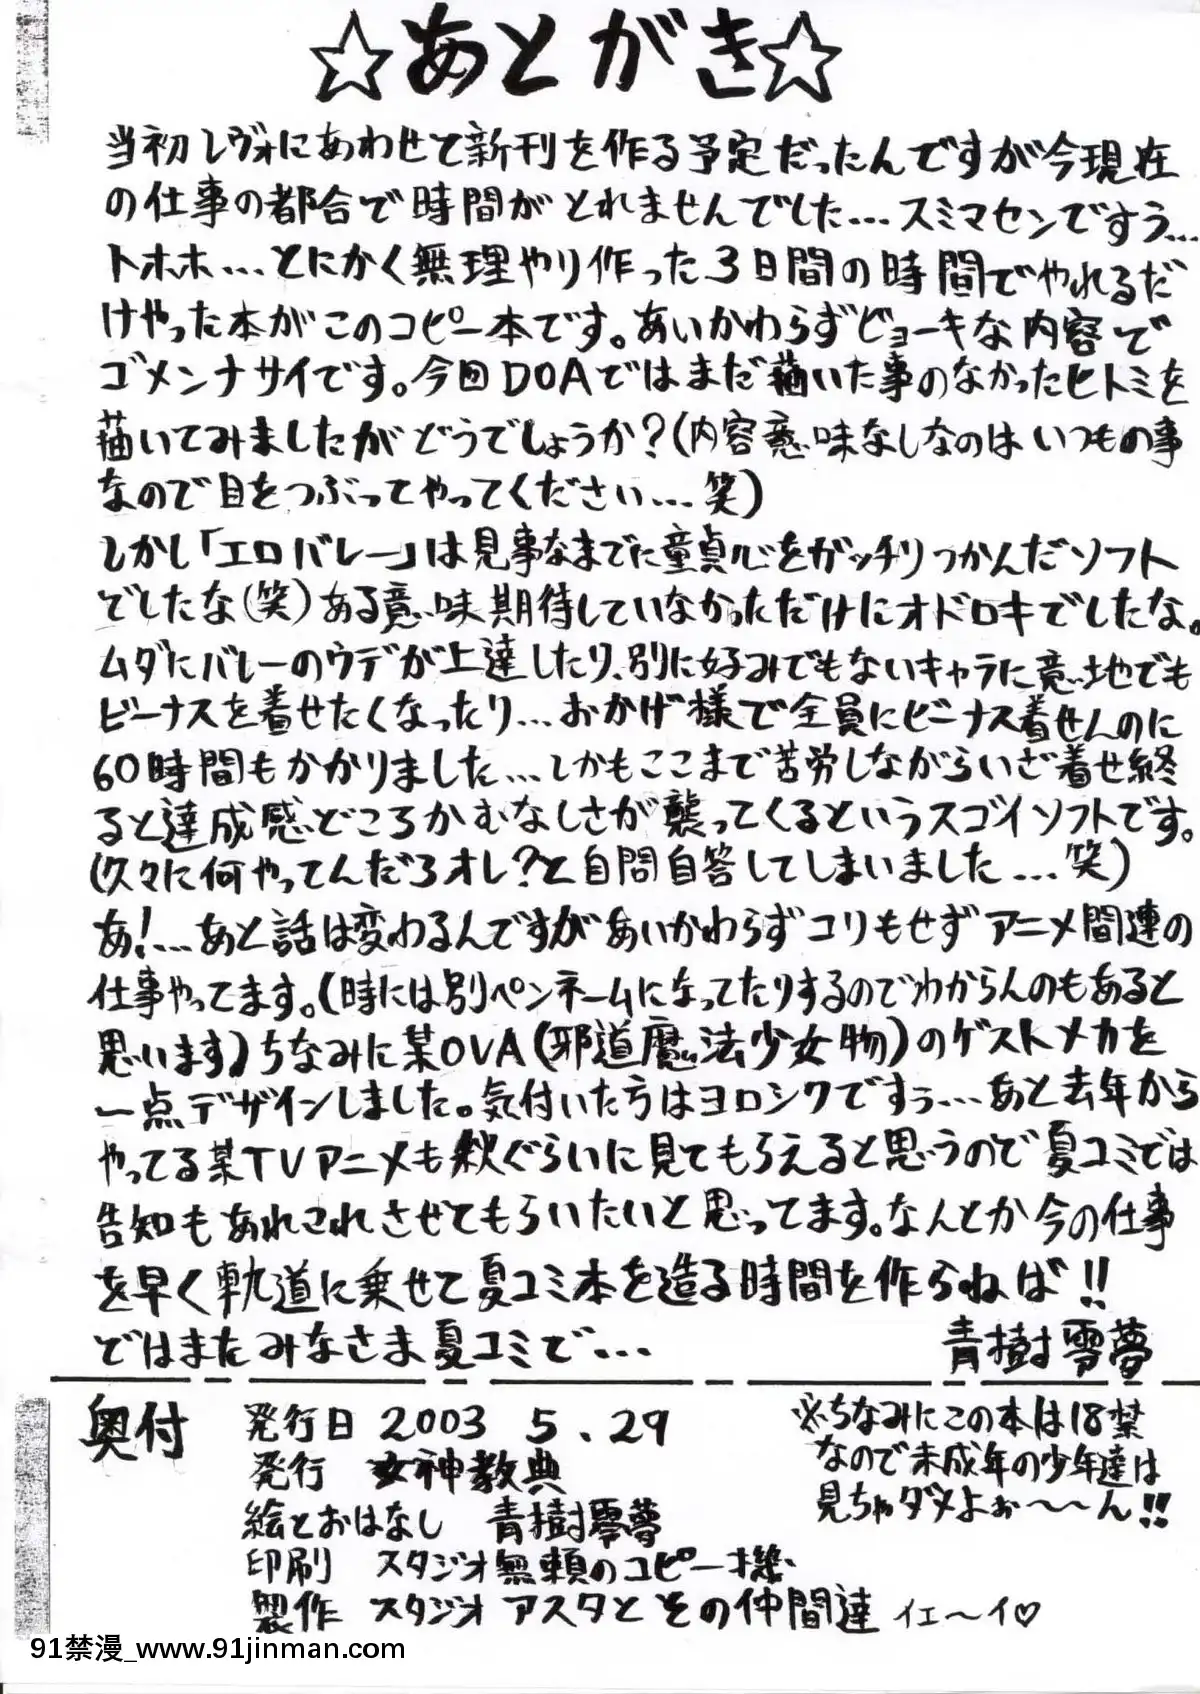 ☆あとがき☆
当初レヴォにあわせて新刊を作る予定だったんですが今現在
の仕事の都合で時間がとれませんでした…スミマセンですぅ…
トホホ…とにかく無理やり作った3日間の時間でやれるだ
けやった本がこのコピー本です。あいかわらずビョーキな内容で
ゴメンナサイです。今回DOAではまだ描いた事のなかったヒトミを
描いてみましたがどうでしょうか?(内容意味なしなのはいつもの事
なので目をつぶってやってください…笑)
しかし「エロバレー」は見事なまでに童貞心をガッチリつかんだソフト
でしたな(笑)ある意味期待していなかっただけにオドロキでしたな。
ムダにバレーのウデが上達したり、別に好みでもないキャラに意地でも
ビーナスを着せたくなったり…おかげ様で全員にビーナス着せんのに
60時間もかかりました…しかもここまで苦労しながらいざ着せ終
ると達成感どころかむなしさが襲ってくるというスゴイソフトです。
(久々に何やってんだろオレ?と自問自答してしまいました…笑)
あ!…あと話は変わるんですがあいかわらずコリもせずアニメ関連の
仕事やってます。(時には別ペンネームになってたりするのでわからんのもあると
思います)ちなみに某OVA(邪道魔法少女物)のゲストメカを
一点デザインしました。気付いた方はヨロシクですぅ…あと去年から
やってる某TVアニメも秋ぐらいに見てもらえると思うので夏コミでは
告知もあれされさせてもらいたいと思ってます。なんとか今の仕事
を早く軌道に乗せて夏コミ本を造る時間を作らねば!!
ではまたみなさま夏コミで…
青樹零夢
奥付
発行日 2003 5.29
発行 女神教典
絵とおはなし 青樹零夢
印刷 スタジオ無頼のコピー機
製作 スタジオアスタとその仲間達 イェ〜イ♡
※ちなみにこの本は18禁
なので未成年の少年達は
見ちゃダメよぉ〜〜ん!!
91禁漫_www.91jinman.com